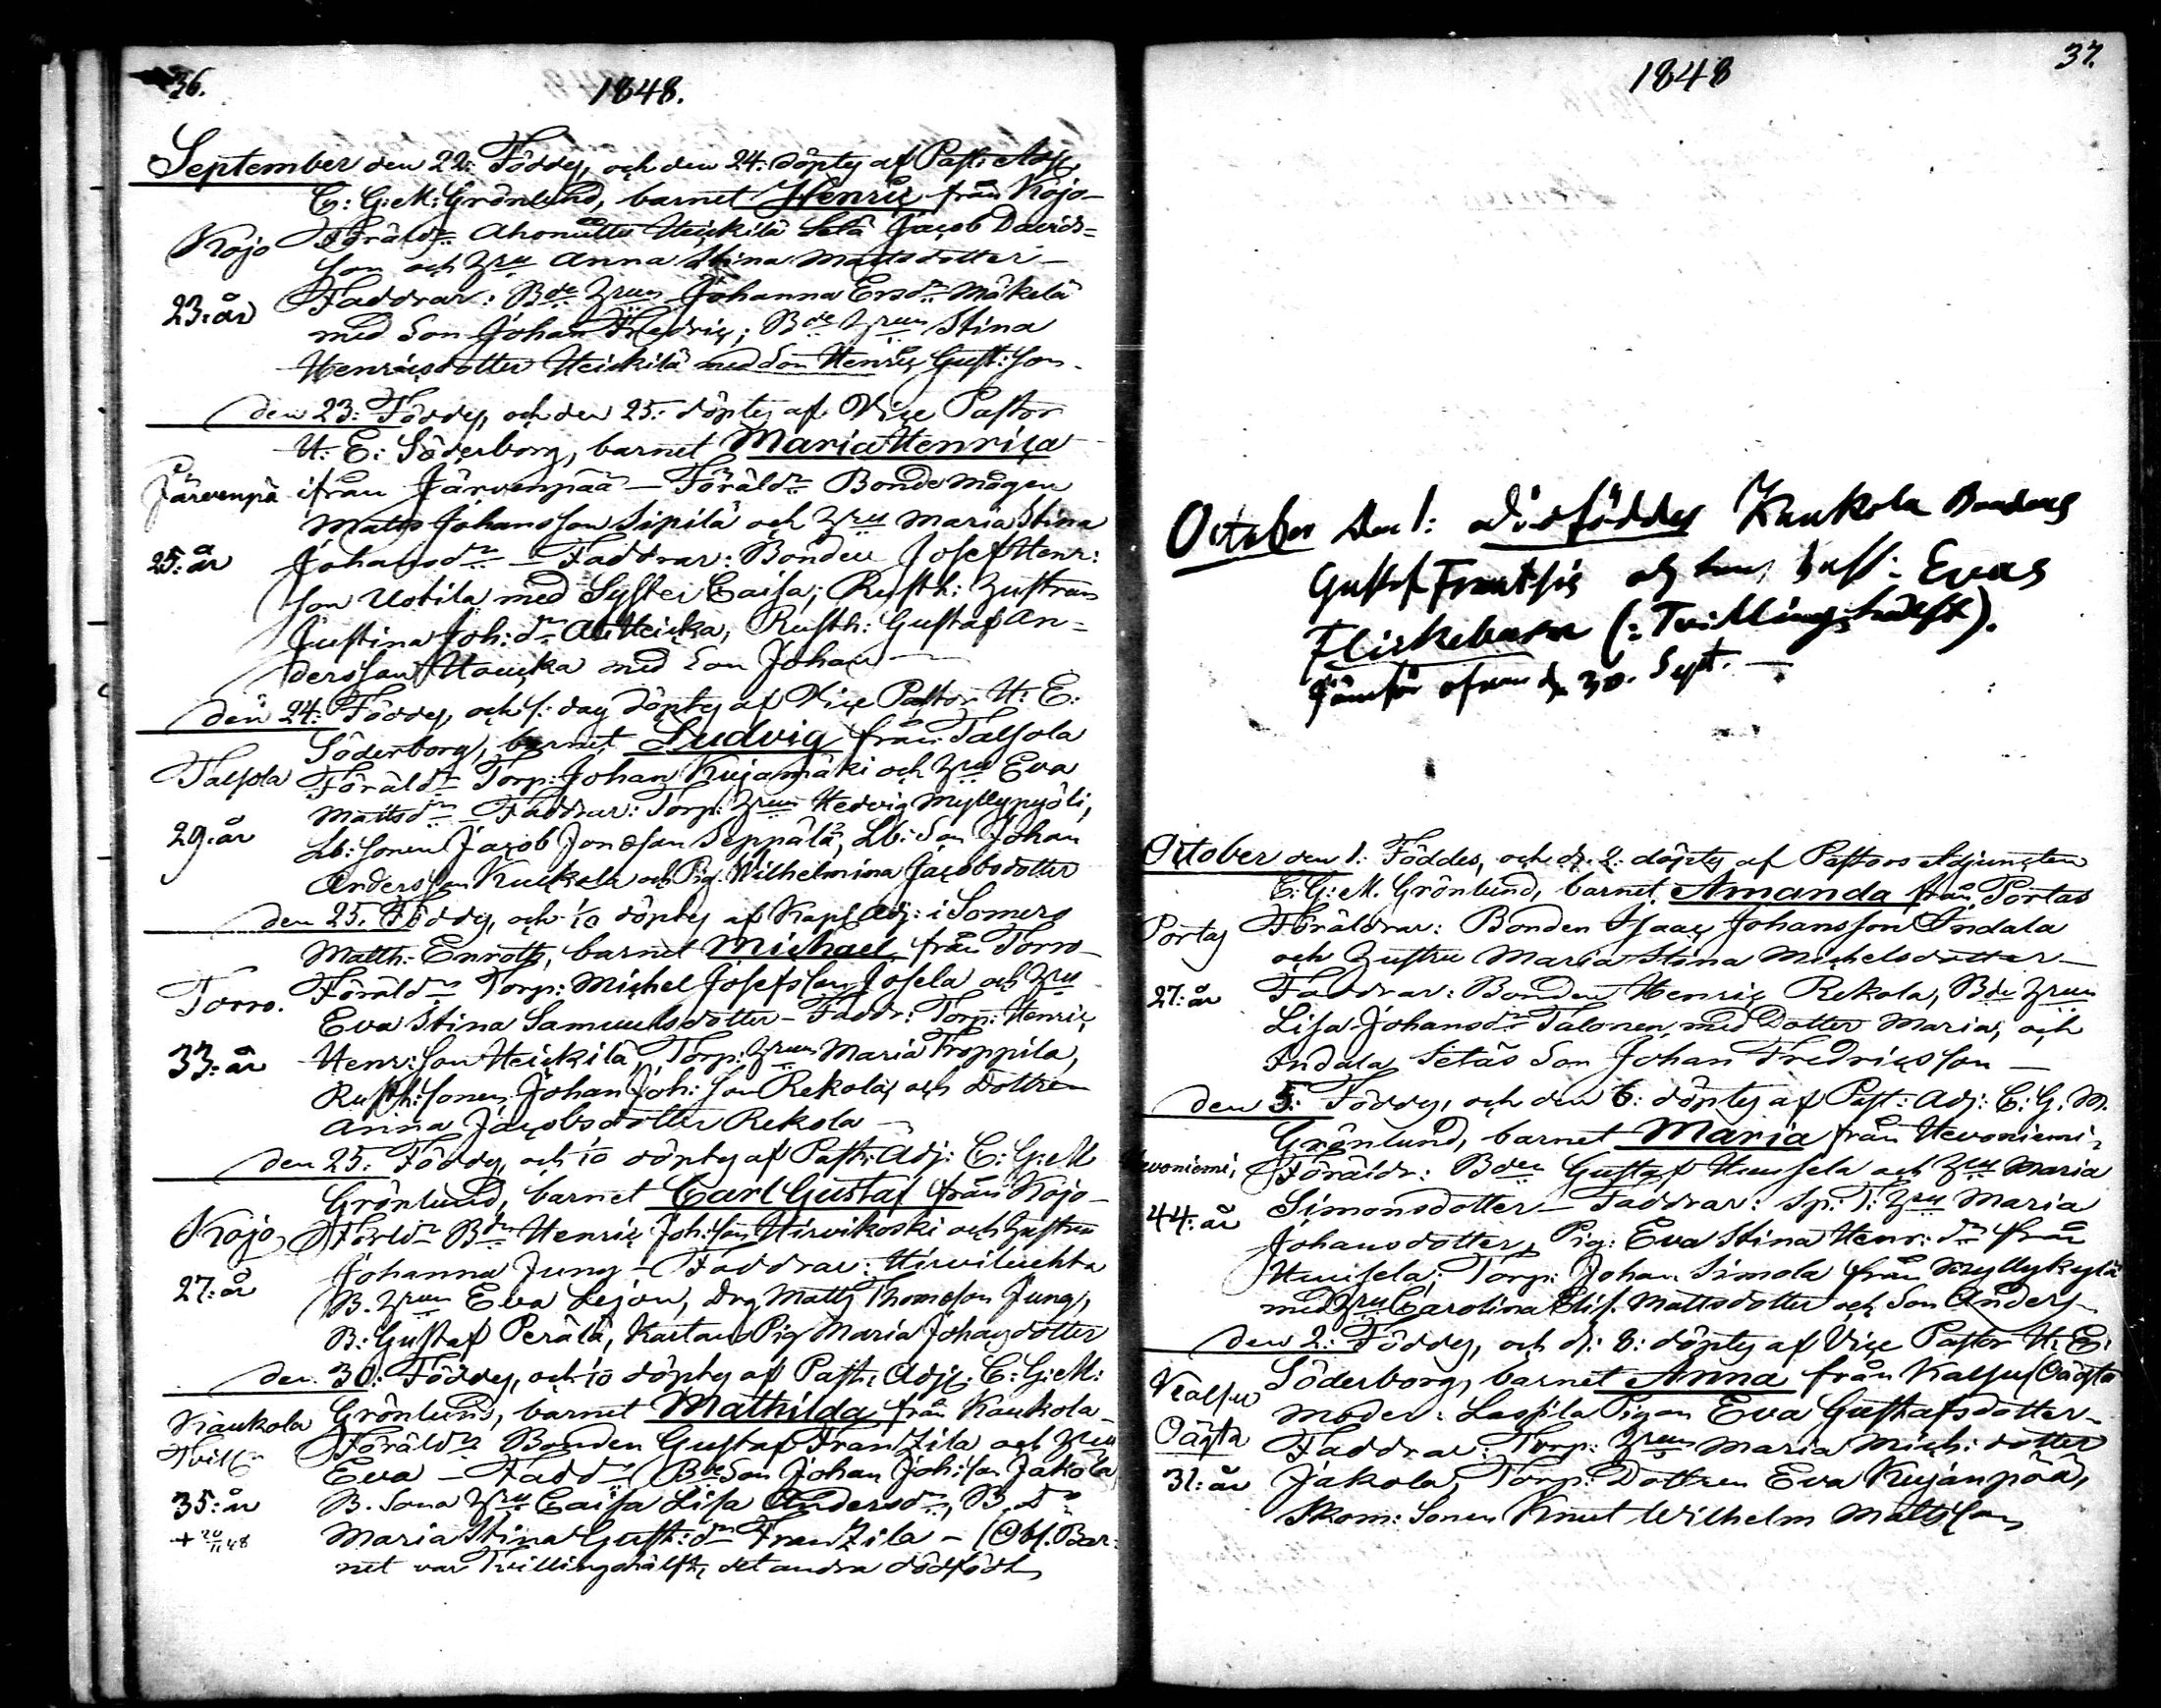 36.
1848.
September den 22: Föddes, och den 24: döptes af Past: Adj:
C: G: M: Grönlund, barnet Henric från Kojo-
Kojo
Föräldr: Ahonuitto Heickilä Setä Jacob Davids=
son och Hru Anna Stina Mattsdotter-
23: år
Faddrar: Bde Hrun Johanna Ersdr Mäkelä
med Son Johan Fredric; Bde Hrun Stina
Henricsdotter Heickilä med Son Henric Gust: son.
den 23: Föddes, och den 25: döptes af Vice Pastor
H: E: Söderborg, barnet Maria Henrica
Järvenpä
ifrån Järvenpää - Föräldr: Bonde mågen
Matts Johansson Sipilä och Hru Maria Stina
25: år
Johansdr - Faddrar: Bonden Josef Henr:
son Uotila med Syster Caisa; Rusth: hustrun
Justina Joh: dr Heicka, Rusth: Gustaf An=
dersson Haucka med Son Johan
den 24: Föddes, och s: dag döptes af Vice Pastor H: E:
Söderborg, barnet Ludvig från Talsola
Talsola
Föräldr Torp: Johan Kujamäki och Hru Eva
Mattsdr - Faddrar: Torp: Hrun Hedvig Myllypyöli,
29: år
Lb: sonen Jacob Jonasson Seppälä, Lb: Son Johan
Andersson Kuckola och Pig. Wilhelmina Jacobsdotter
den 25. Föddes, och 1/10 döptes af Kapl Adj: i Somero
Matth: Enroth, barnet Michael från Torro-
Torro.
Föräldr Torp: Michel Josefsson Josela och Hru
Eva Stina Samuelsdotter - Faddr: Torp: Henric
33: år
Henr: son Heickilä, Torp: Hrun Maria Froppila,
Rusth: sonen Johan Joh: son Rekola, och Dottren
Anna Jacobsdotter Rekola -
den 25: Föddes, och 1/10 döptes af Past: Adj: C: G: M
Grönlund, barnet Carl Gustaf från Kojo-
Kojo
Förldr Bdn Henric Joh: son Hirvikoski och hustru
Johanna Jung - Faddrar: Hirviluchta
27: år
B. Hrun Eva Lejon, Drg Matts Thomasson Jung,
B: Gustaf Perälä, Kartano Pig Maria Johansdotter
den 30: Föddes, och 1/10 döptes af Past: Adj: C: G: M:
Kaukola
Grönlund, barnet Mathilda från Kaukola-
Tvill:
Föräldr Bonden Gustaf Franzila och Hru
Eva - Faddr (Bde Son Johan Joh: son Jakola
35: år
B. Sona Hru Caisa Lisa Andersdr, B. Dr
+ 20/11 48
Maria Stina Gust: dr Franzila - (Obs. Bar=
net var Tvillingshälft, det andra dödfödt
37.
1848
October den 1: dödföddes Kaukola Bondens
Gustaf Frantsis och hans hust: Evas
Flickebarn (: Tvillingshälft).
Jämför ofvan d. 30. Sept. -
October den 1: Föddes, och d. 2: döptes af Pastors Adjuncten
C: G: M. Grönlund, barnet Amanda från Portas
Portas
Föräldrar: Bonden Isaac Johansson Indala
och hustru Maria Stina Michelsdotter -
27: år
Faddrar: Bonden Henric Rekola, Bde Hrun
Lisa Johansdr Talonen, med Dotter Maria, och
Indala Setäs Son Johan Fredricsson -
den 5: Föddes, och den 6: döptes af Past: Adj: C: G. M.
Grönlund, barnet Maria från Hevoniemi,
Hevoniemi,
Föräldr: Bden Gustaf Huusela och Hru Maria
44: år
Simonsdotter - Faddrar: Sp: T: Hru Maria
Johansdotter, Pig: Eva Stina Henr: dr från
Huusela; Torp: Johan Simola från Myllykylä
med Hru Carolina Elis. Mattsdotter och Son Anders -
den 2: Föddes, och d: 8: döptes af Vice Pastor H: E:
Kalsu
Söderborg, barnet Anna från Kalsu (Oägta
Moder: Lassila Pigan Eva Gustafsdotter -
Oägta
Faddrar: Torp: Hrun Maria Mich: dotter
31: år
Jakola, Torp: Dottren Eva Kujanpää,
Skom: Sonen Knut Wilhelm Mattsson